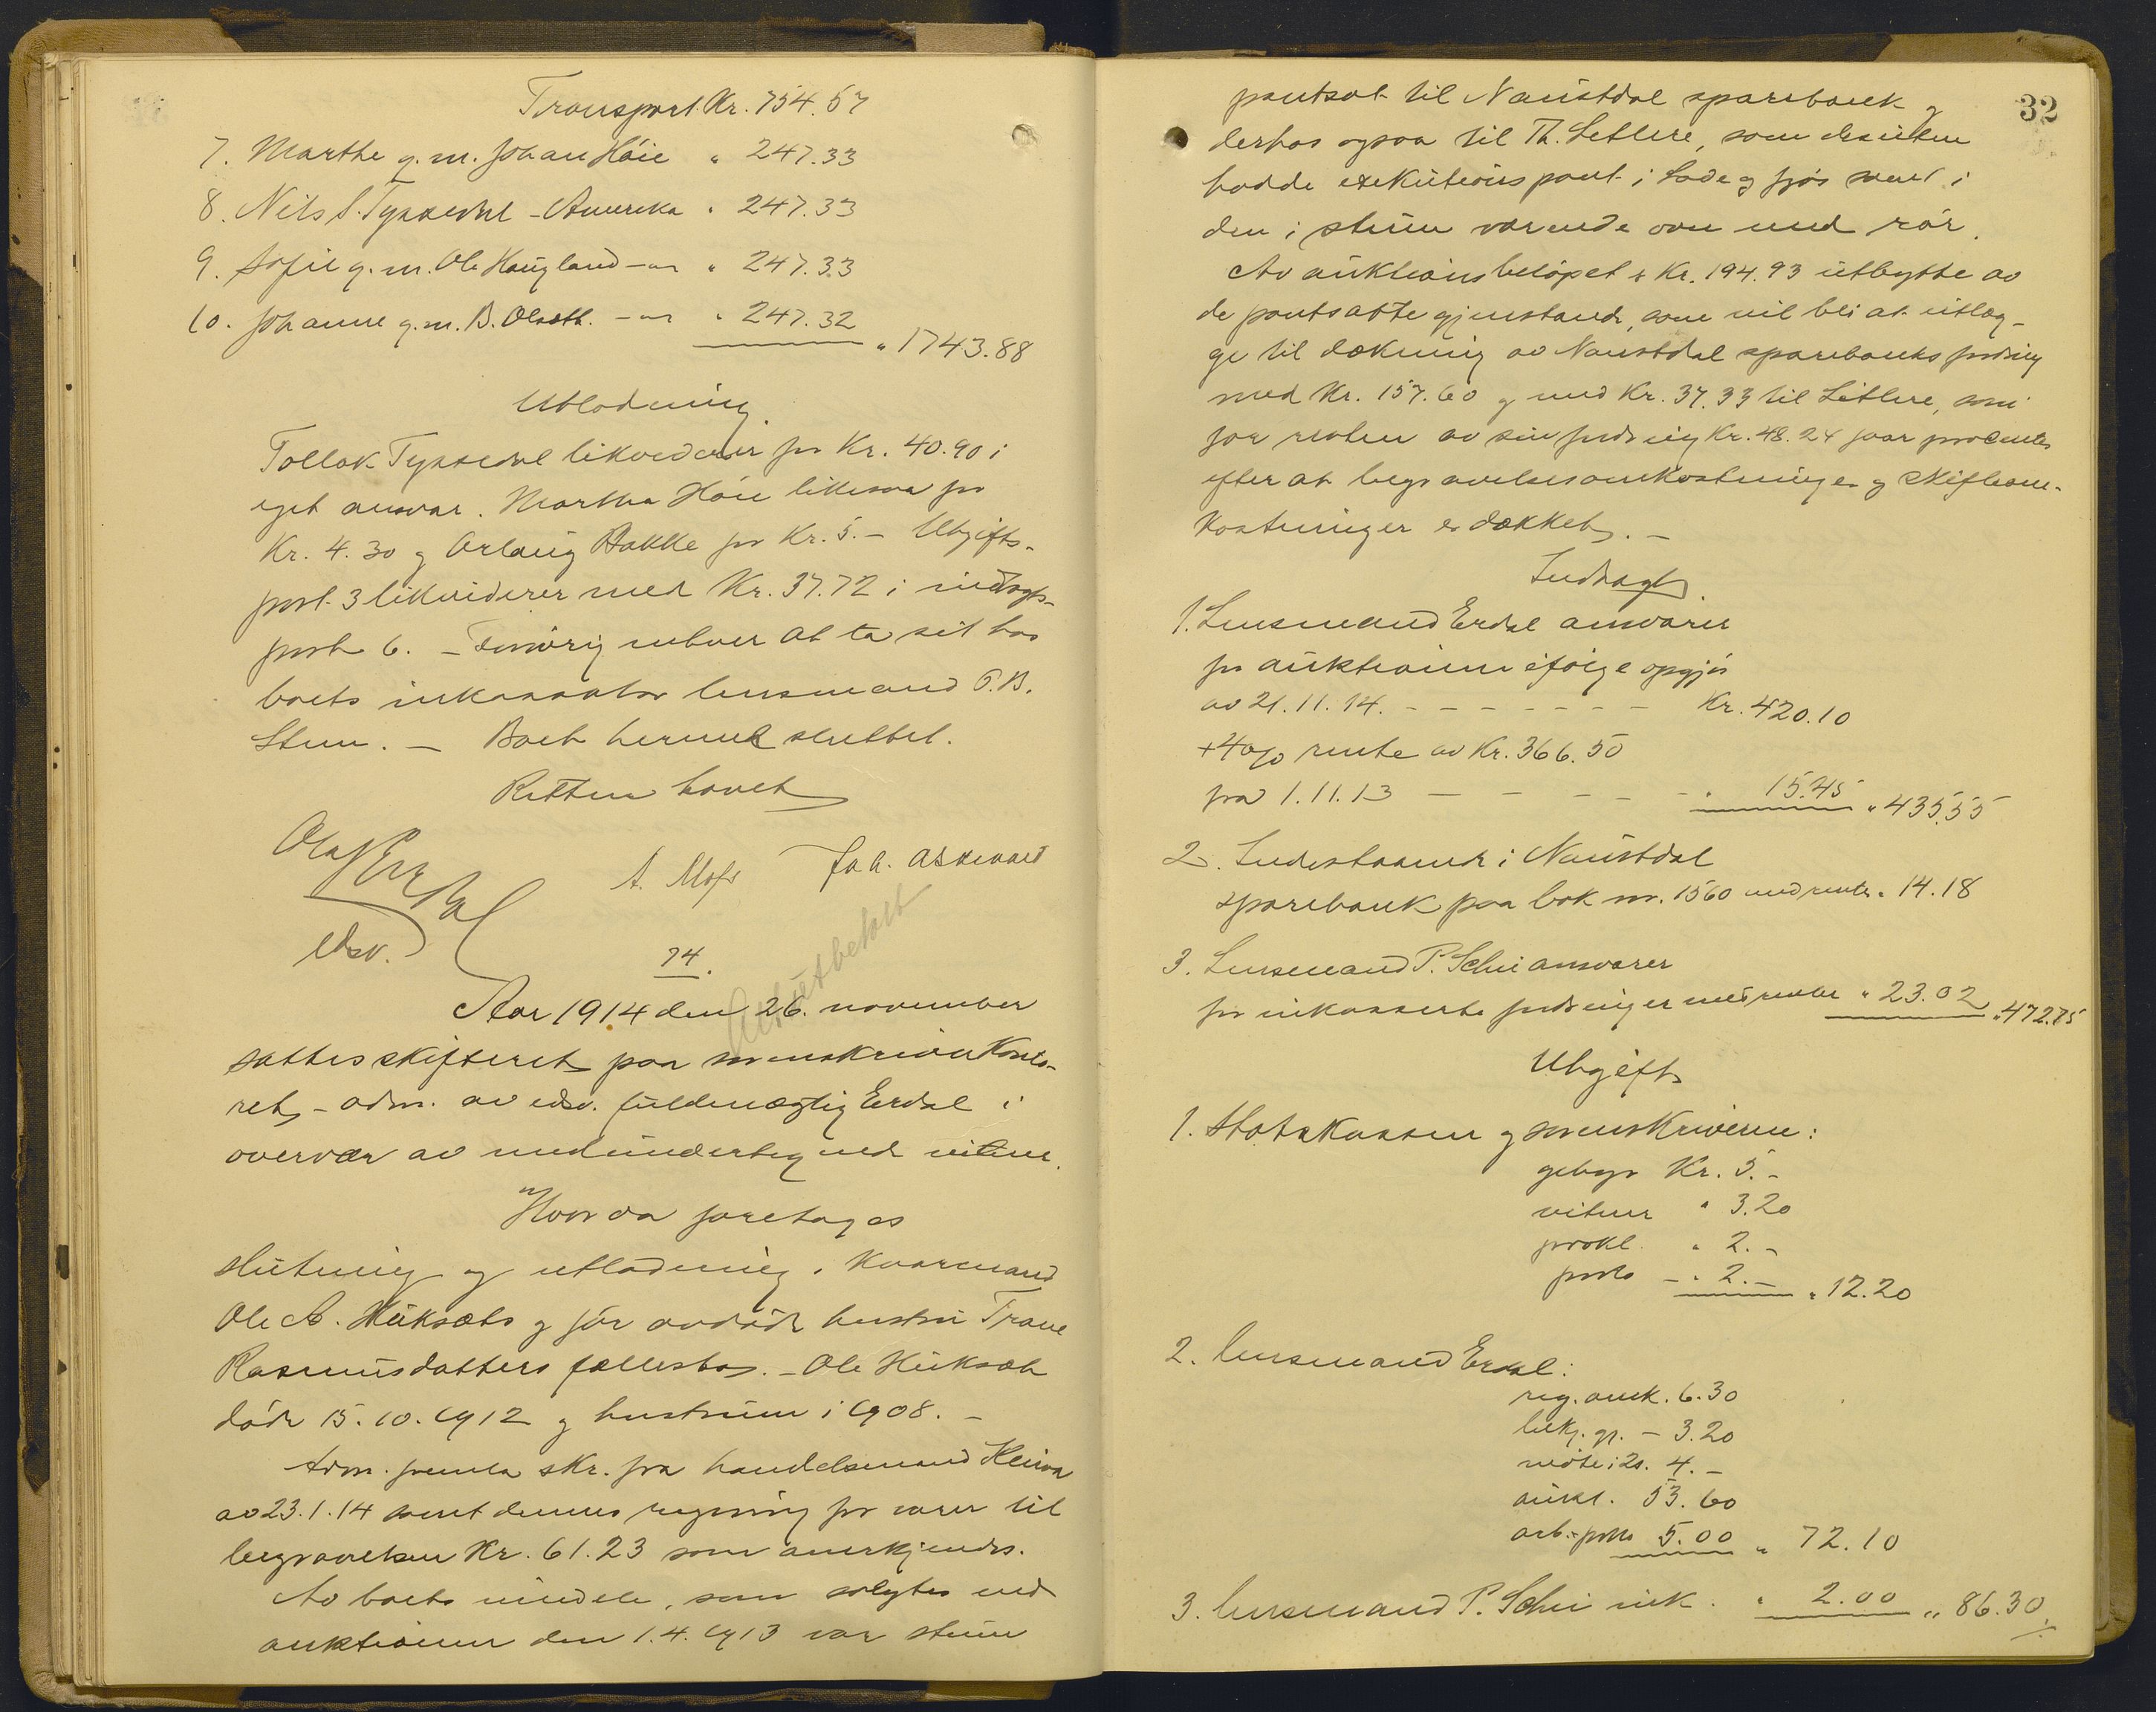 Transport Kr. 754.57
7. Marthe g. m. Johan Höie " 247.33
8. Nils S. Tyssedal - Amerika " 247.33
9. Sofie g. m. Ole Haugland - " 247.33
10. Johanne g. m. B. Olseth. - " 247.32
" 1743.88
Utlodning
Tollak Tyssedal likviderer for Kr. 40.90 i
eget ansvar. Martha Höie likesaa for
Kr. 4.30 og Orlaug Bakke for Kr. 5.- Utgifts-
post 3 likviderer med Kr. 37.72 i indtægts-
post 6. - Forövrig enhver at ta sit hos
boets inkassator lensmand P. B.
Stun. - Boet hermed sluttet.
Retten hævet
Olaf Erdal
edsv.
A. Moss
Joh. Askevold
74.
Alt utbetalt
Aar 1914 den 26. november
sattes skifteret paa sorenskriverkonto-
ret, - adm. av edsv. fuldmægtig Erdal i
overvær av medundertegned vitne.
Hvor da foretages
slutning og utlodning i kaarmand
Ole A. Huksets og för avdöde hustru Trane
Rasmusdatters fællesbo. - Ole Hukset
döde 15.10.1912 og hustruen i 1908. -
Adm. fremla skr. fra handelsmand
av 23.1.14 samt dennes regning for varer til
begravelsen Kr. 61.23 som anerkjendes.
Av boets eiendele, som solgtes ved
auktionen den 1.4.1913 var stuen
32
pantsat til Naustdal sparebank og
derhos ogsaa til Th. Setlere, som desuten
hadde exekutionspant i lade og fjös samt i
den i stuen værende ovn med rör.
Av auktionsbelöpet er Kr. 194.93 utbytte av
de pantsatte gjenstande, som vil bli at utlæg-
ge til dækning av Naustdal sparebanks fordring
med Kr. 157.60 og med Kr. 37.33 til Setlere, som
for resten av sin fordring Kr. 48.24 faar procenter
efter at begravelsesomkostninger og skifteom-
kostninger er dækket. -
Indtægt
1. Lensmand Erdal ansvarer
for auktionen ifölge opgjör
av 21.11.14. - - - - - - - Kr. 420.10
+ 4% rente av Kr. 366.50
fra 1.11.13 - - - - - " 15.45 " 435.55
2. Indestaaende i Naustdal
sparebank paa bok nr. 1560 med renter " 14.18
3. Lensmand P. Schei ansvarer
for inkasserte fordringer med renter " 23.02 " 472.75
Utgift
1. Statskassen og sorenskriveren:
gebyr Kr. 5.-
vitner " 3.20
prokl. " 2.-
porto - " 2.- " 12.20
2. lensmand Erdal:
reg. omk. 6.30
bekj. gj. - 3.20
möte i 2s. 4.-
aukt. 53.60
arb. + porto 5.00 " 72.10
3. lensmand P. Schei ink. " 2.00 " 86.30